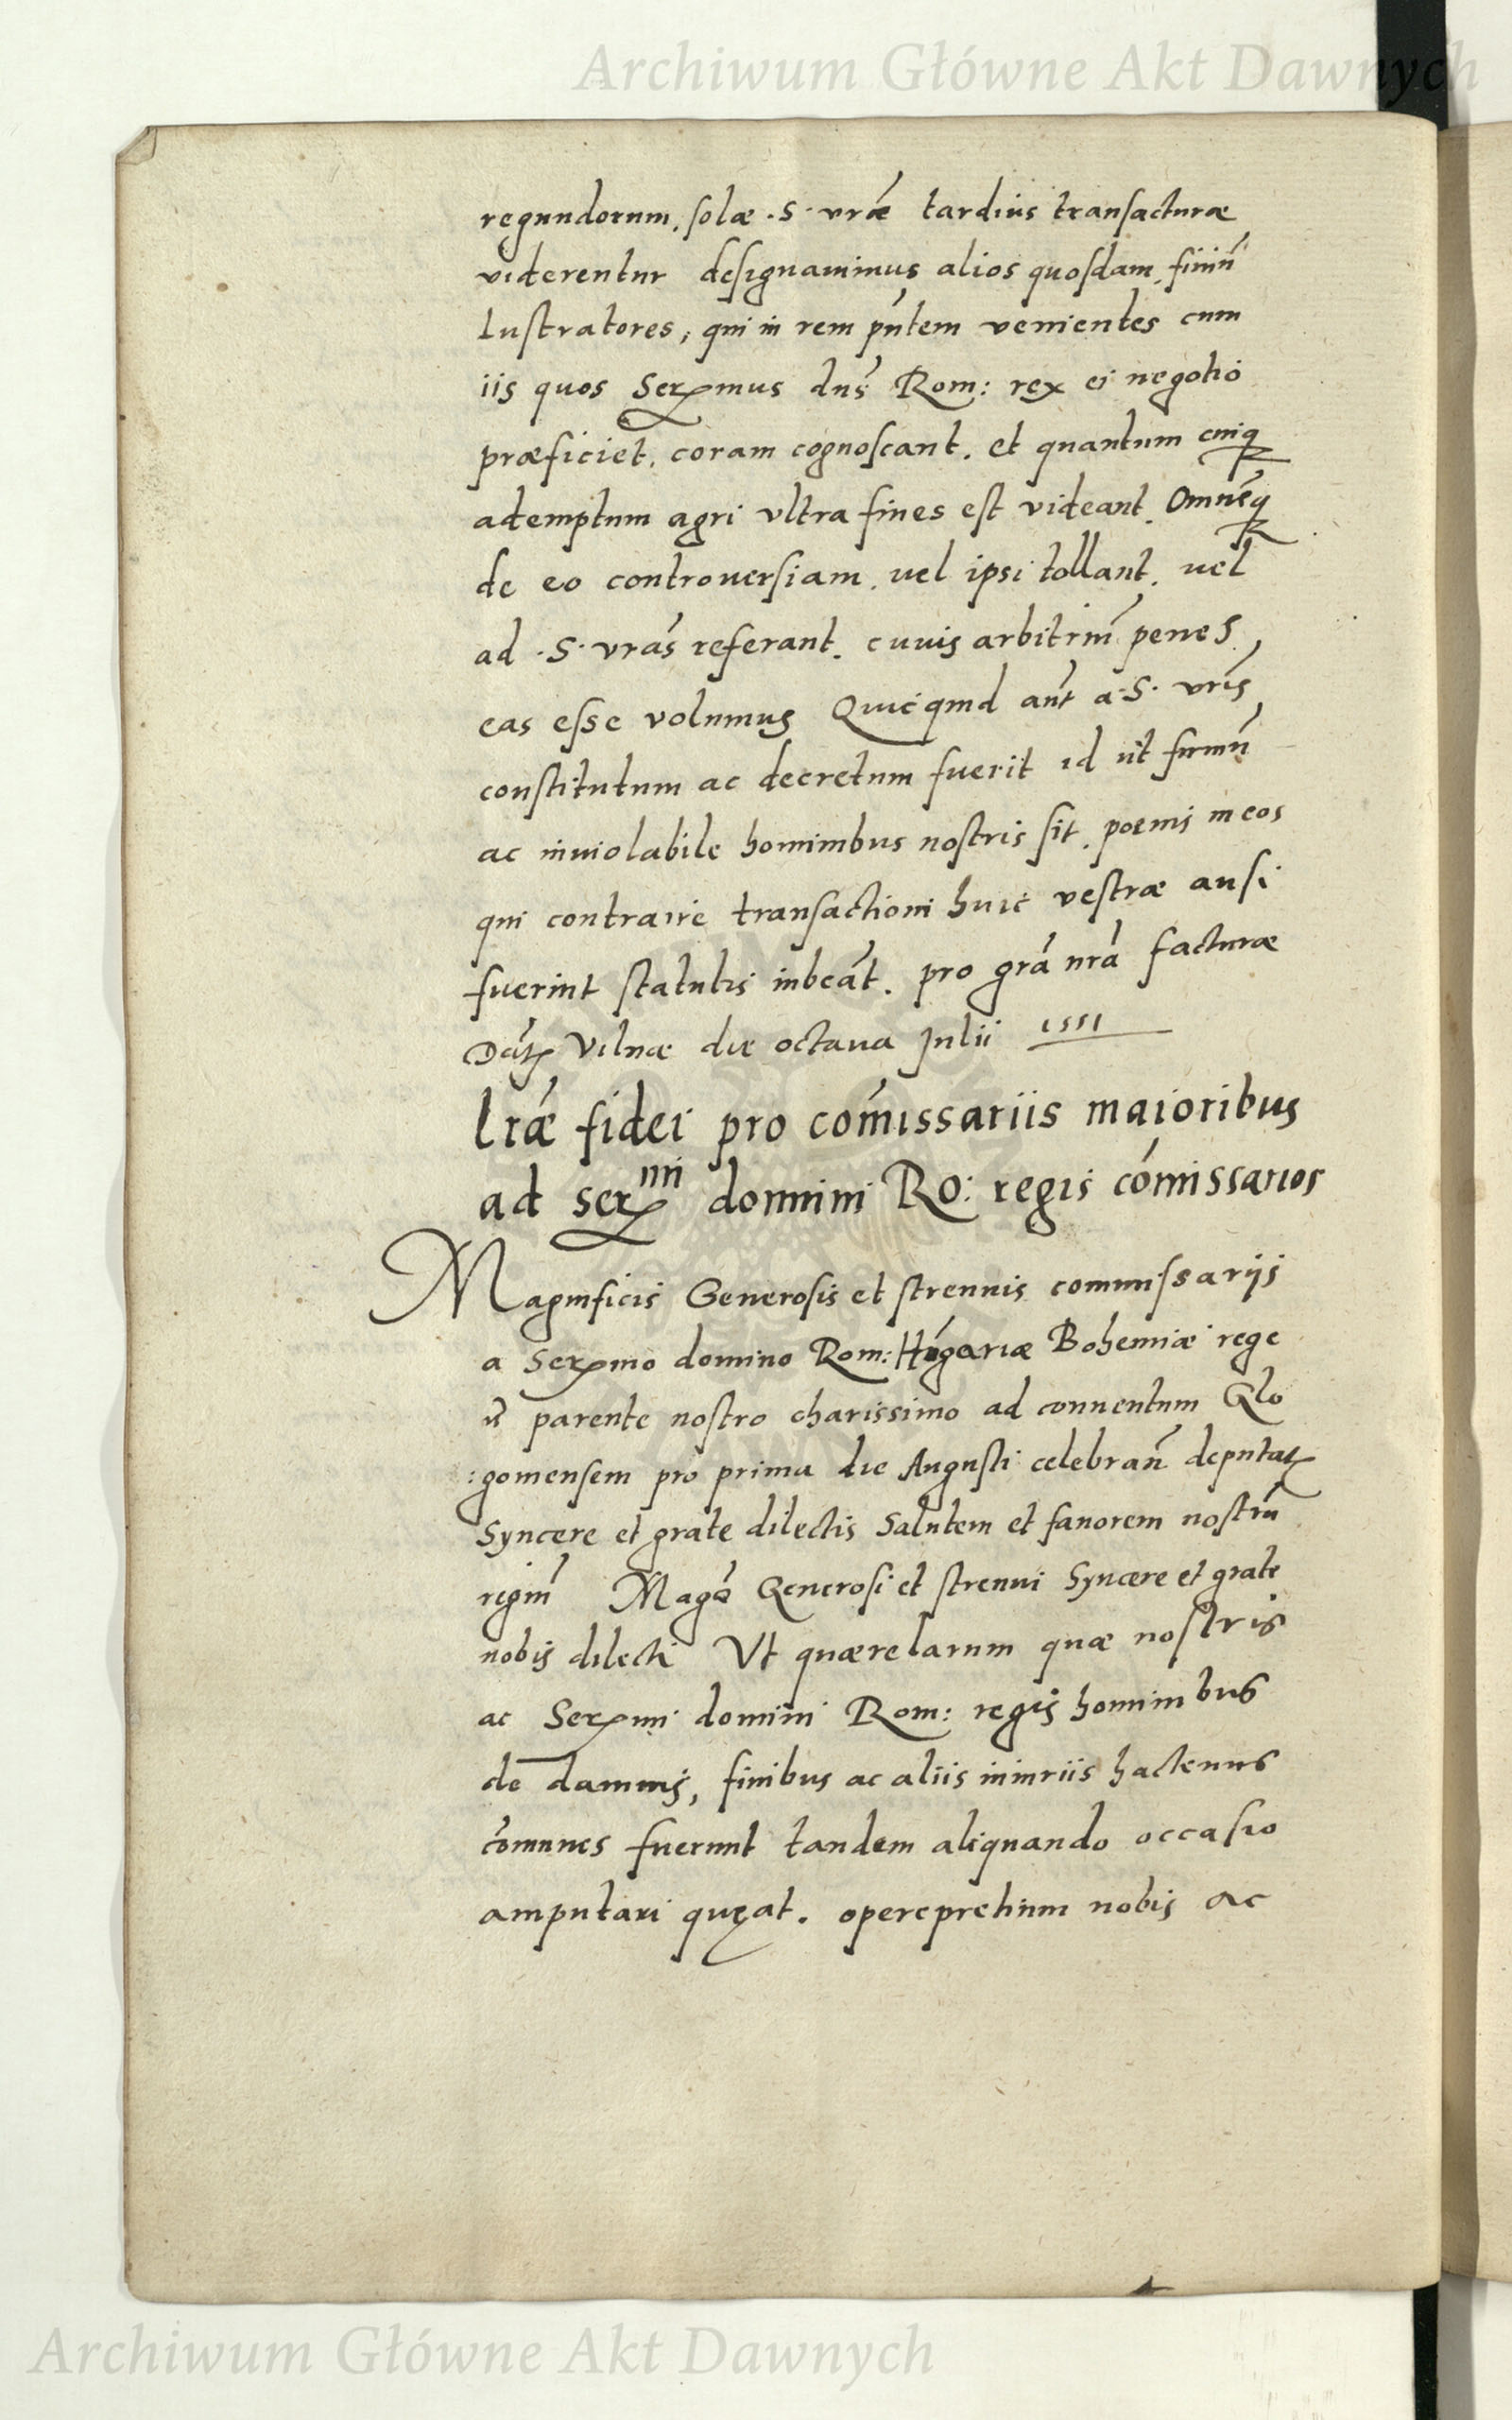 Archiwum Główne Akt Dawnych
regundorum, solæ .S. vræ̃ tardius transacturæ
viderentur designauimus alios quosdam finiũ
lustratores, qui in rem pñtem venientes cum
iis quos Serᷤmus dñs Rom: rex ei negotio
præficiet, coram cognoscant, et quantum cuiq
ademptum agri vltra fines est videant. Omnẽq
de eo controuersiam, vel ipsi tollant, vel
ad .S. vrãs referant, cuius arbitriũ penes
eas esse volumus Quicquid aũt a .S. vrĩs
constitutum ac decretum fuerit id ut firmũ
ac inuiolabile hominibus nostris sit, poenis in eos
qui contraire transactioni huic vestræ ausi
fuerint statutis iubeãt. pro grã nrã facturæ
Datꝭ Vilnæ die octaua Julii 1551
Lræ̃ fidei pro cõmissariis maioribus
ad serᷤmi domini RO: regis cõmissarios
Magnificis Generosis et strenuis commissariis
a Serᷤmo domino Rom: Hũgariæ Bohemiæ rege
ũ parente nostro charissimo ad conuentum Glo
:gomensem pro prima die Augusti celebrañ deputatꝭ
Syncere et grate dilectis Salutem et fauorem nostrũ
regiũ Magᶜⁱ Generosi et strenui Syncere et grate
nobis dilecti Vt quærelarum quæ nostris
ac Serᷤmi domini Rom: regis hominibus
de damnis, finibus ac aliis iniuriis hactenus
cõmunes fuerunt tandem aliquando occasio
amputari quęat. operepretium nobis ac
Archiwum Główne Akt Dawnych